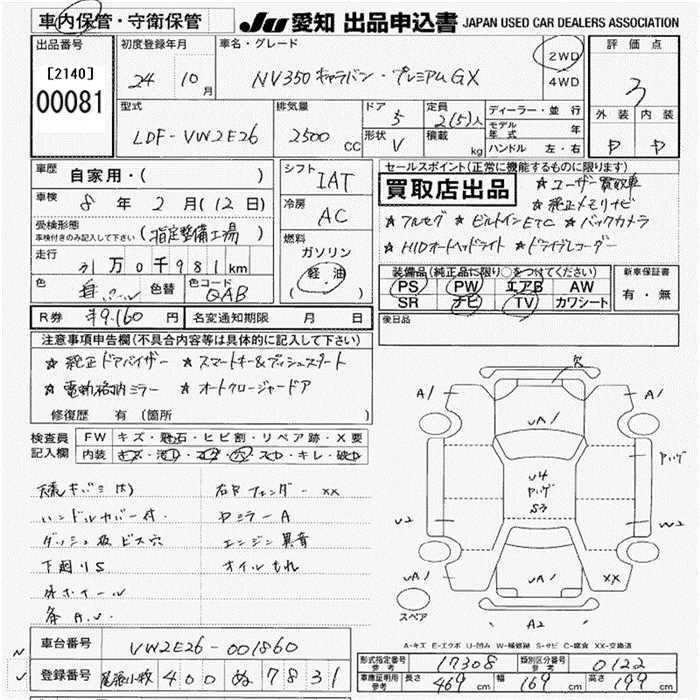 車内保管・守衛保管
JU 愛知 出品申込書 JAPAN USED CAR DEALERS ASSOCIATION
出品番号
[2140]
00081
初度登録年月
24 10月
車名・グレード
NV350キャラバン・プレミアムGX
2WD
4WD
評価点
3
外装 内装
型式
LDF-VW2E26
排気量
2500 CC
ドア
5
定員
2(5)人
形状
V
積載
kg
ディーラー・並行
モデル年式 年
ハンドル 左・右
車歴
自家用・( )
車検
8年2月(12日)
受検形態
車検付きのみ記入して下さい
(指定整備工場)
走行
31万0千981km
色
色替
色コード
QAB
シフト
IAT
冷房
AC
燃料
ガソリン
(軽・油)
R券 ¥9,160円
名変通知期限 月 日
セールスポイント(正常に機能するものに限ります)
買取店出品
☆ユーザー買取車
☆純正メモリナビ
☆フルセグ ☆ビルトインETC ☆バックカメラ
☆HIDオートヘッドライト ☆ドライブレコーダー
装備品(純正品に限り○をつけてください)
PS PW エアB AW
SR ナビ TV カワシート
新車保証書
有・無
後日品
注意事項申告欄(不具合内容等は具体的に記入して下さい)
☆純正ドアバイザー ☆スマートキー&プッシュスタート
☆電動格納ミラー ☆オートクロージャードア
修復歴 有 (箇所
検査員記入欄
FW キズ・飛石・ヒビ割・リペア跡・X要
内装 キズ・汚レ・コゲ・穴・スレ・キレ・破レ
ハンドルカバー付
ダッシュ板ビス穴
下廻りS
右Rフェンダー XX
RミラーA
エンジン異音
オイルもれ
A1 A1
UA1
U4
ヤハゲ
S3
ヤハゲ
U2 W2
UA1 UA1 XX
A2
スペア
A-キズ E-エクボ U-凹み W-補修跡 S-サビ C-腐食 XX-交換済
車台番号 VW2E26-001860
登録番号 尾張小牧 400 ぬ 7831
形式指定番号 参考 17308
類別区分番号 参考 0122
車庫証明用 参考 長さ 469cm 幅 169cm 高さ 199cm